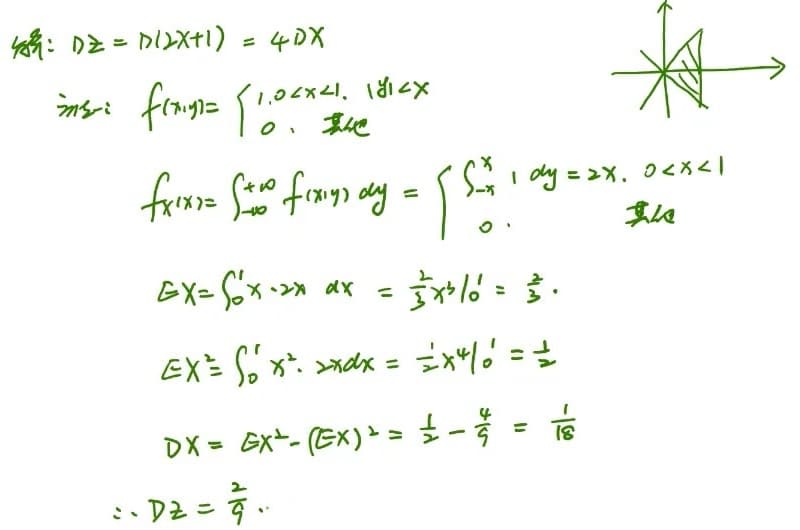 解: DZ = D(2X+1) = 4DX
f(x,y) = { 1, 0<x<1, |y|<x
0, 其他
f_X(x) = ∫_{-∞}^{+∞} f(x,y) dy = { ∫_{-x}^{x} 1 dy = 2x, 0<x<1
0, 其他
EX = ∫_0^1 x·2x dx = 2/3 x³|_0^1 = 2/3.
EX² = ∫_0^1 x²·2xdx = 1/2 x⁴|_0^1 = 1/2
DX = EX² - (EX)² = 1/2 - 4/9 = 1/18
∴ DZ = 2/9.